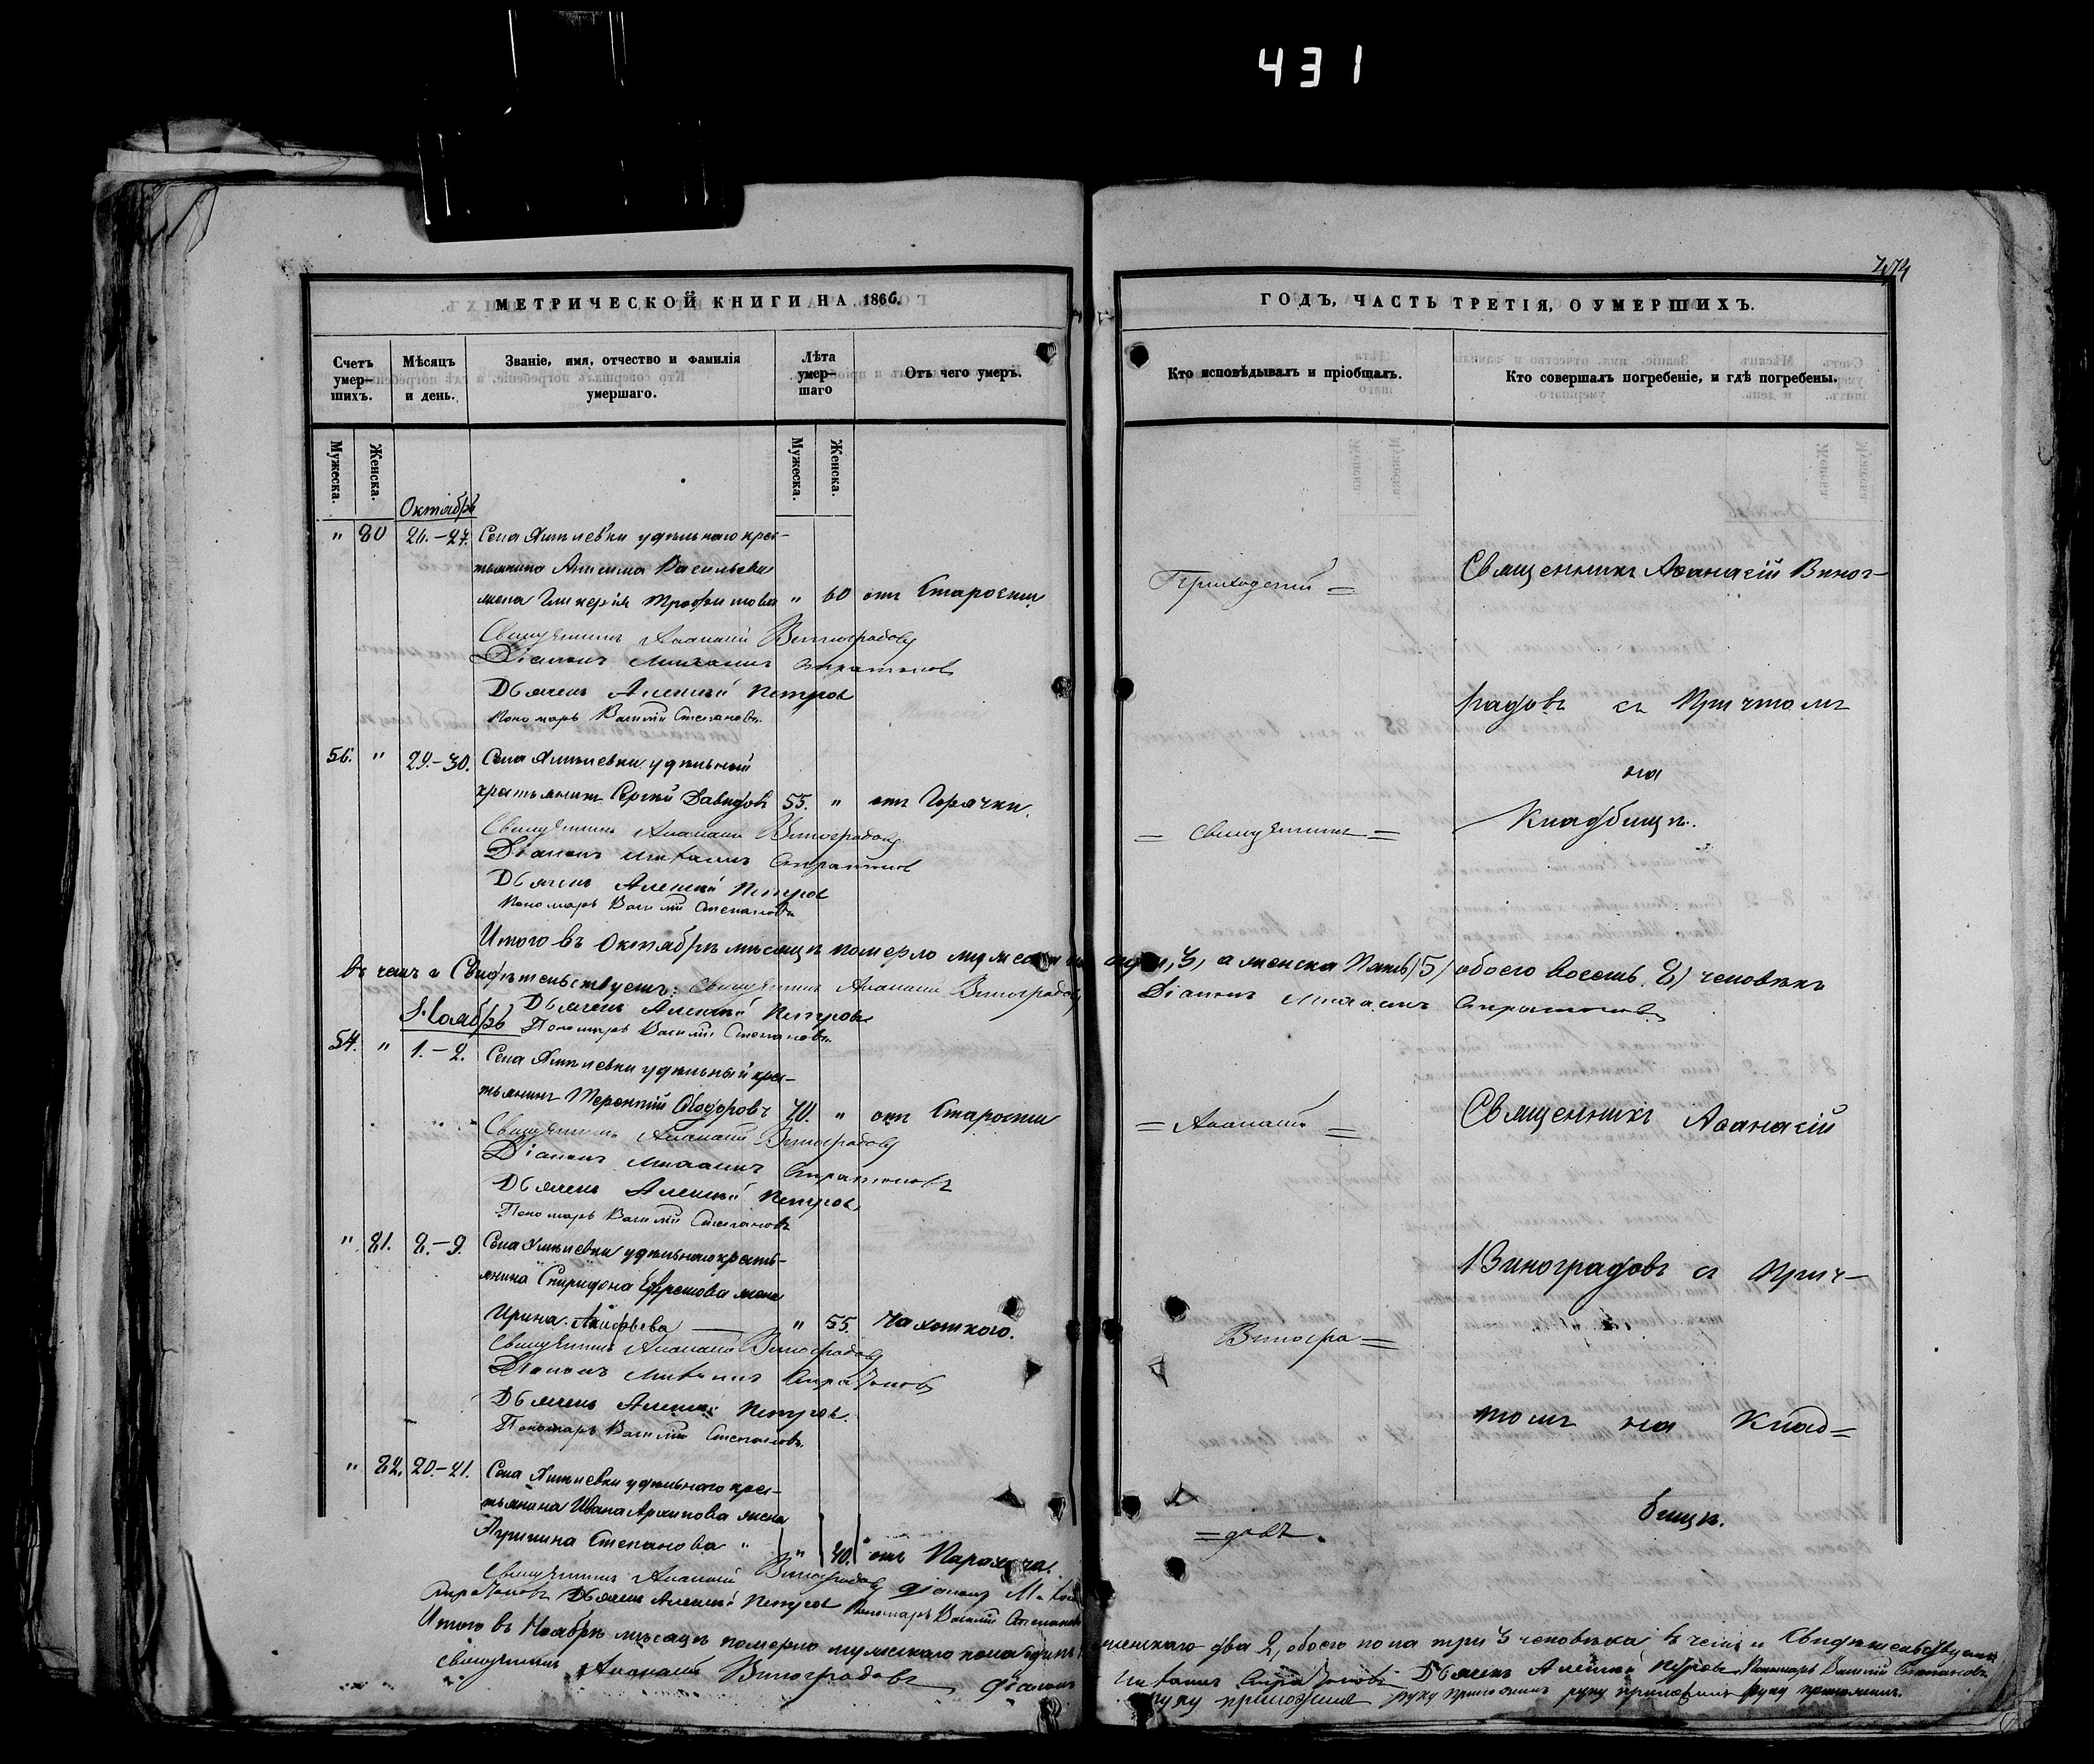 431
474
МЕТРИЧЕСКОЙ КНИГИ НА 1866.
Счетъ умер-шихъ.
Мѣсяцъ и день.
Званіе, имя, отчество и фамилія умершаго.
Лѣта умер-шаго
Отъ чего умеръ.
Мужеска.
Женска.
Мужеска.
Женска.
Октябрь
" 80 26.-27. Села удѣльнаго крес-
тьянина Анисима Васильева
жена Гликерія Трофимова " 60 отъ Старости
Священникъ Аѳанасій Виноградовъ
Діаконъ Стратоновъ
Дьячекъ Алексѣй Петровъ
Пономарь Василій Степановъ
56. " 29.-30. Села удѣльный
крестьянинъ Сергѣй Давыдовъ 55. " отъ Горячки.
Священникъ Аѳанасій Виноградовъ
Діаконъ Стратоновъ
Дьячекъ Алексѣй Петровъ
Пономарь Василій Степановъ
Итого въ Октябрѣ мѣсяцѣ померло мужеска 3, а женска пять (5) обоего восемь 8) человѣкъ
въ чемъ и Свидѣтельствуемъ: Священникъ Аѳанасій Виноградовъ Діаконъ Стратоновъ
Дьячекъ Алексѣй Петровъ
Ноябрь Пономарь Василій Степановъ
57. " 1.-2. Села удѣльный крес-
тьянинъ Терентій Ѳедоровъ 70. " отъ Старости
Священникъ Аѳанасій Виноградовъ
Діаконъ Стратоновъ
Дьячекъ Алексѣй Петровъ
Пономарь Василій Степановъ
" 81. 8.-9. Села удѣльнаго кресть-
янина Спиридона Ефремова жена
Ирина " 55. Чахоткою.
Священникъ Аѳанасій Виноградовъ
Діаконъ Стратоновъ
Дьячекъ Алексѣй Петровъ
Пономарь Василій Степановъ
" 82. 20.-21. Села удѣльнаго крес-
тьянина Ивана Архипова жена
Степанова " " 40. отъ Паралича.
Священникъ Аѳанасій Виноградовъ Діаконъ
Стратоновъ Дьячекъ Алексѣй Петровъ Пономарь Василій Степановъ
Итого въ Ноябрѣ мѣсяцѣ померло мужескаго пола одинъ женскаго два 2, обоего пола три 3 человѣка въ чемъ и Свидѣтельствуемъ
Священникъ Аѳанасій Виноградовъ Діаконъ Стратоновъ Дьячекъ Алексѣй Петровъ Пономарь Василій Степановъ
руку приложилъ руку приложилъ руку приложилъ руку приложилъ.
ГОДЪ, ЧАСТЬ ТРЕТІЯ, О УМЕРШИХЪ.
Кто исповѣдывалъ и пріобщалъ.
Кто совершалъ погребеніе, и гдѣ погребены.
Приходскій =
= Священникъ =
= Аѳанасій =
Виногра =
= довъ.
Священникъ Аѳанасій Виног-
радовъ съ Причтомъ
на
Кладбищѣ.
Священникъ Аѳанасій
Виноградовъ съ Прич-
томъ на Клад=
бищѣ.